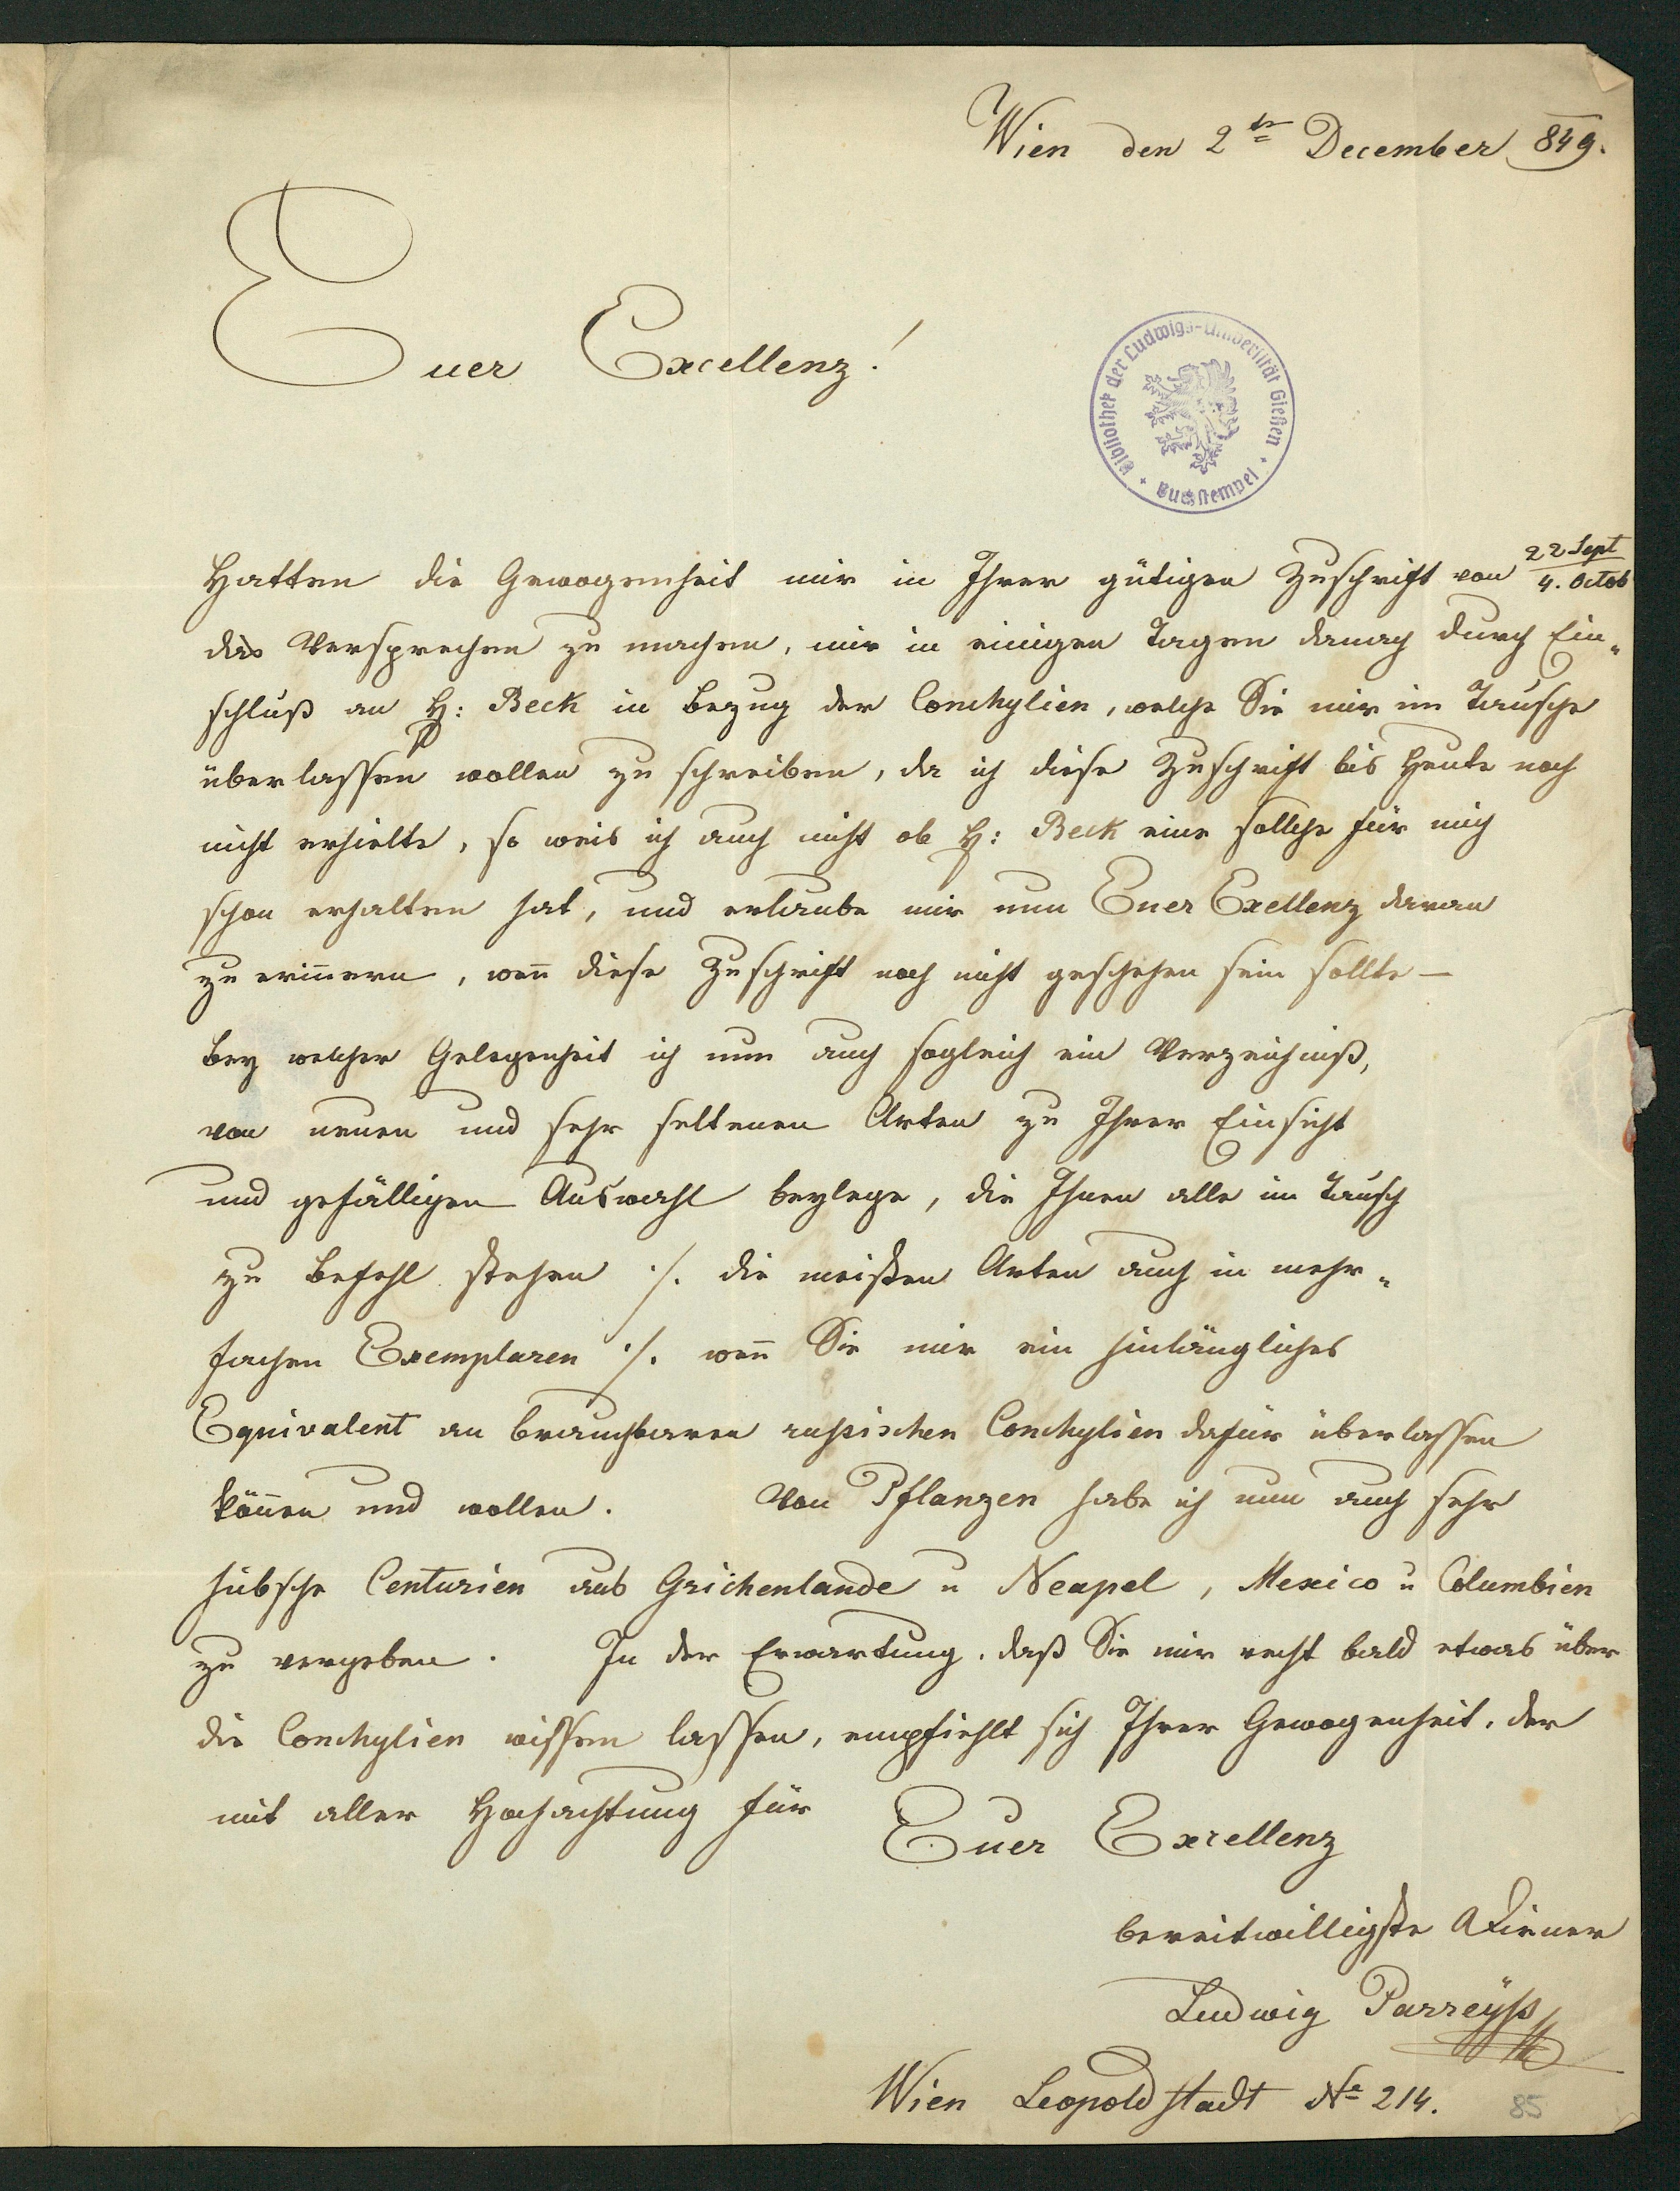 Wien den 2tn December 849.
Euer Excellenz!
Bibliothek der Ludwigs-Universität Gießen
+ Buchstempel +
Hatten die Gewogenheit mir in Ihrer gütigen Zuschrift von 22 Sept / 4. Octob
das Versprechen zu machen, mir in einigen Tagen danach durch Ein„
schluß an H: Beck in Bezug der Conchylien, welche Sie mir im Tausche
überlassen wollen zu schreiben, da ich diese Zuschrift bis Heute noch
nicht erhielte, so weis ich auch nicht ob H: Beck eine sollche für mich
schon erhalten hat, und erlaube mir nun Euer Exellenz daran
zu erin̄ern, wen̄ diese Zuschrift noch nicht geschehen sein sollte —
Bey welcher Gelegenheit ich nun auch sogleich ein Verzeichniß,
von neuen und sehr seltenen Arten zu Ihrer Einsicht
und gefälligen Auswahl beylege, die Ihnen alle im Tausch
zu Befehl stehen ·/. die meisten Arten auch in mehr„
fachen Exemplaren ·/. wen̄ Sie mir ein hinlängliches
Equivalent an brauchbaren rußischen Conchylien dafür überlassen
kön̄en und wollen. Von Pflanzen habe ich nun auch sehr
hübsche Centurien aus Grichenlande u Neapel, Mexico u Columbien
zu vergeben. In der Erwartung, daß Sie mir recht bald etwas über
die Conchylien wissen lassen, empfiehlt sich Ihrer Gewogenheit, der
mit aller Hochachtung für Euer Excellenz
bereitwilligste Diener
Ludwig Parreyß
Wien Leopoldstadt No 214.
85